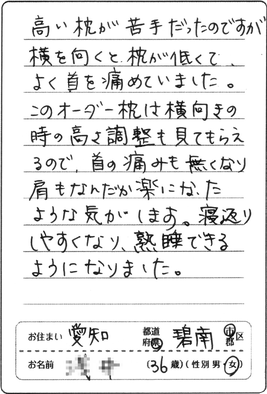 高い枕が苦手だったのですが
横を向くと枕が低くて、
よく首を痛めていました。
このオーダー枕は横向きの
時の高さ調整も見てもらえ
るので、首の痛みも無くなり
肩もなんだか楽になった
ような気がします。寝返り
しやすくなり、熟睡できる
ようになりました。
お住まい 愛知 都道府県 碧南 市区郡
お名前 (36歳) (性別 男・女)